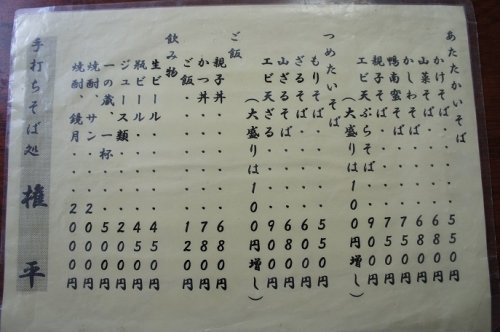 あたたかいそば
かけそば・・・・550円
山菜そば・・・・680円
かしわそば・・・680円
鴨南蛮そば・・・750円
親子そば・・・・750円
エビ天ぷらそば・・900円
(大盛りは100円増し)
つめたいそば
もりそば・・・・550円
ざるそば・・・・600円
山ざるそば・・・680円
エビ天ざる・・・900円
(大盛りは100円増し)
ご飯
親子丼・・・・・680円
かつ丼・・・・・780円
ご飯・・・・・・120円
飲み物
生ビール・・・・450円
瓶ビール・・・・450円
ジュース類・・・200円
一の蔵、一杯・・500円
焼酎、サン・・・2000円
焼酎、鏡月・・・2000円
手打ちそば処 権平